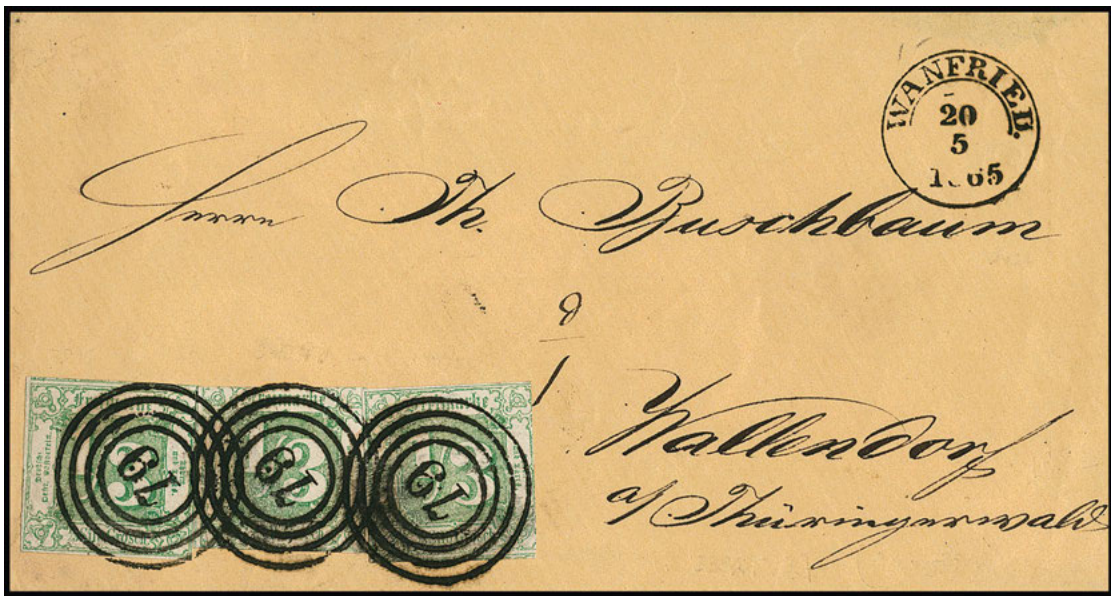 WANFRIED.
20
5
1865
Herrn Th. Buschbaum
d
Wallendorf
a/ Thüringerwald
Freimarke
79
79
79